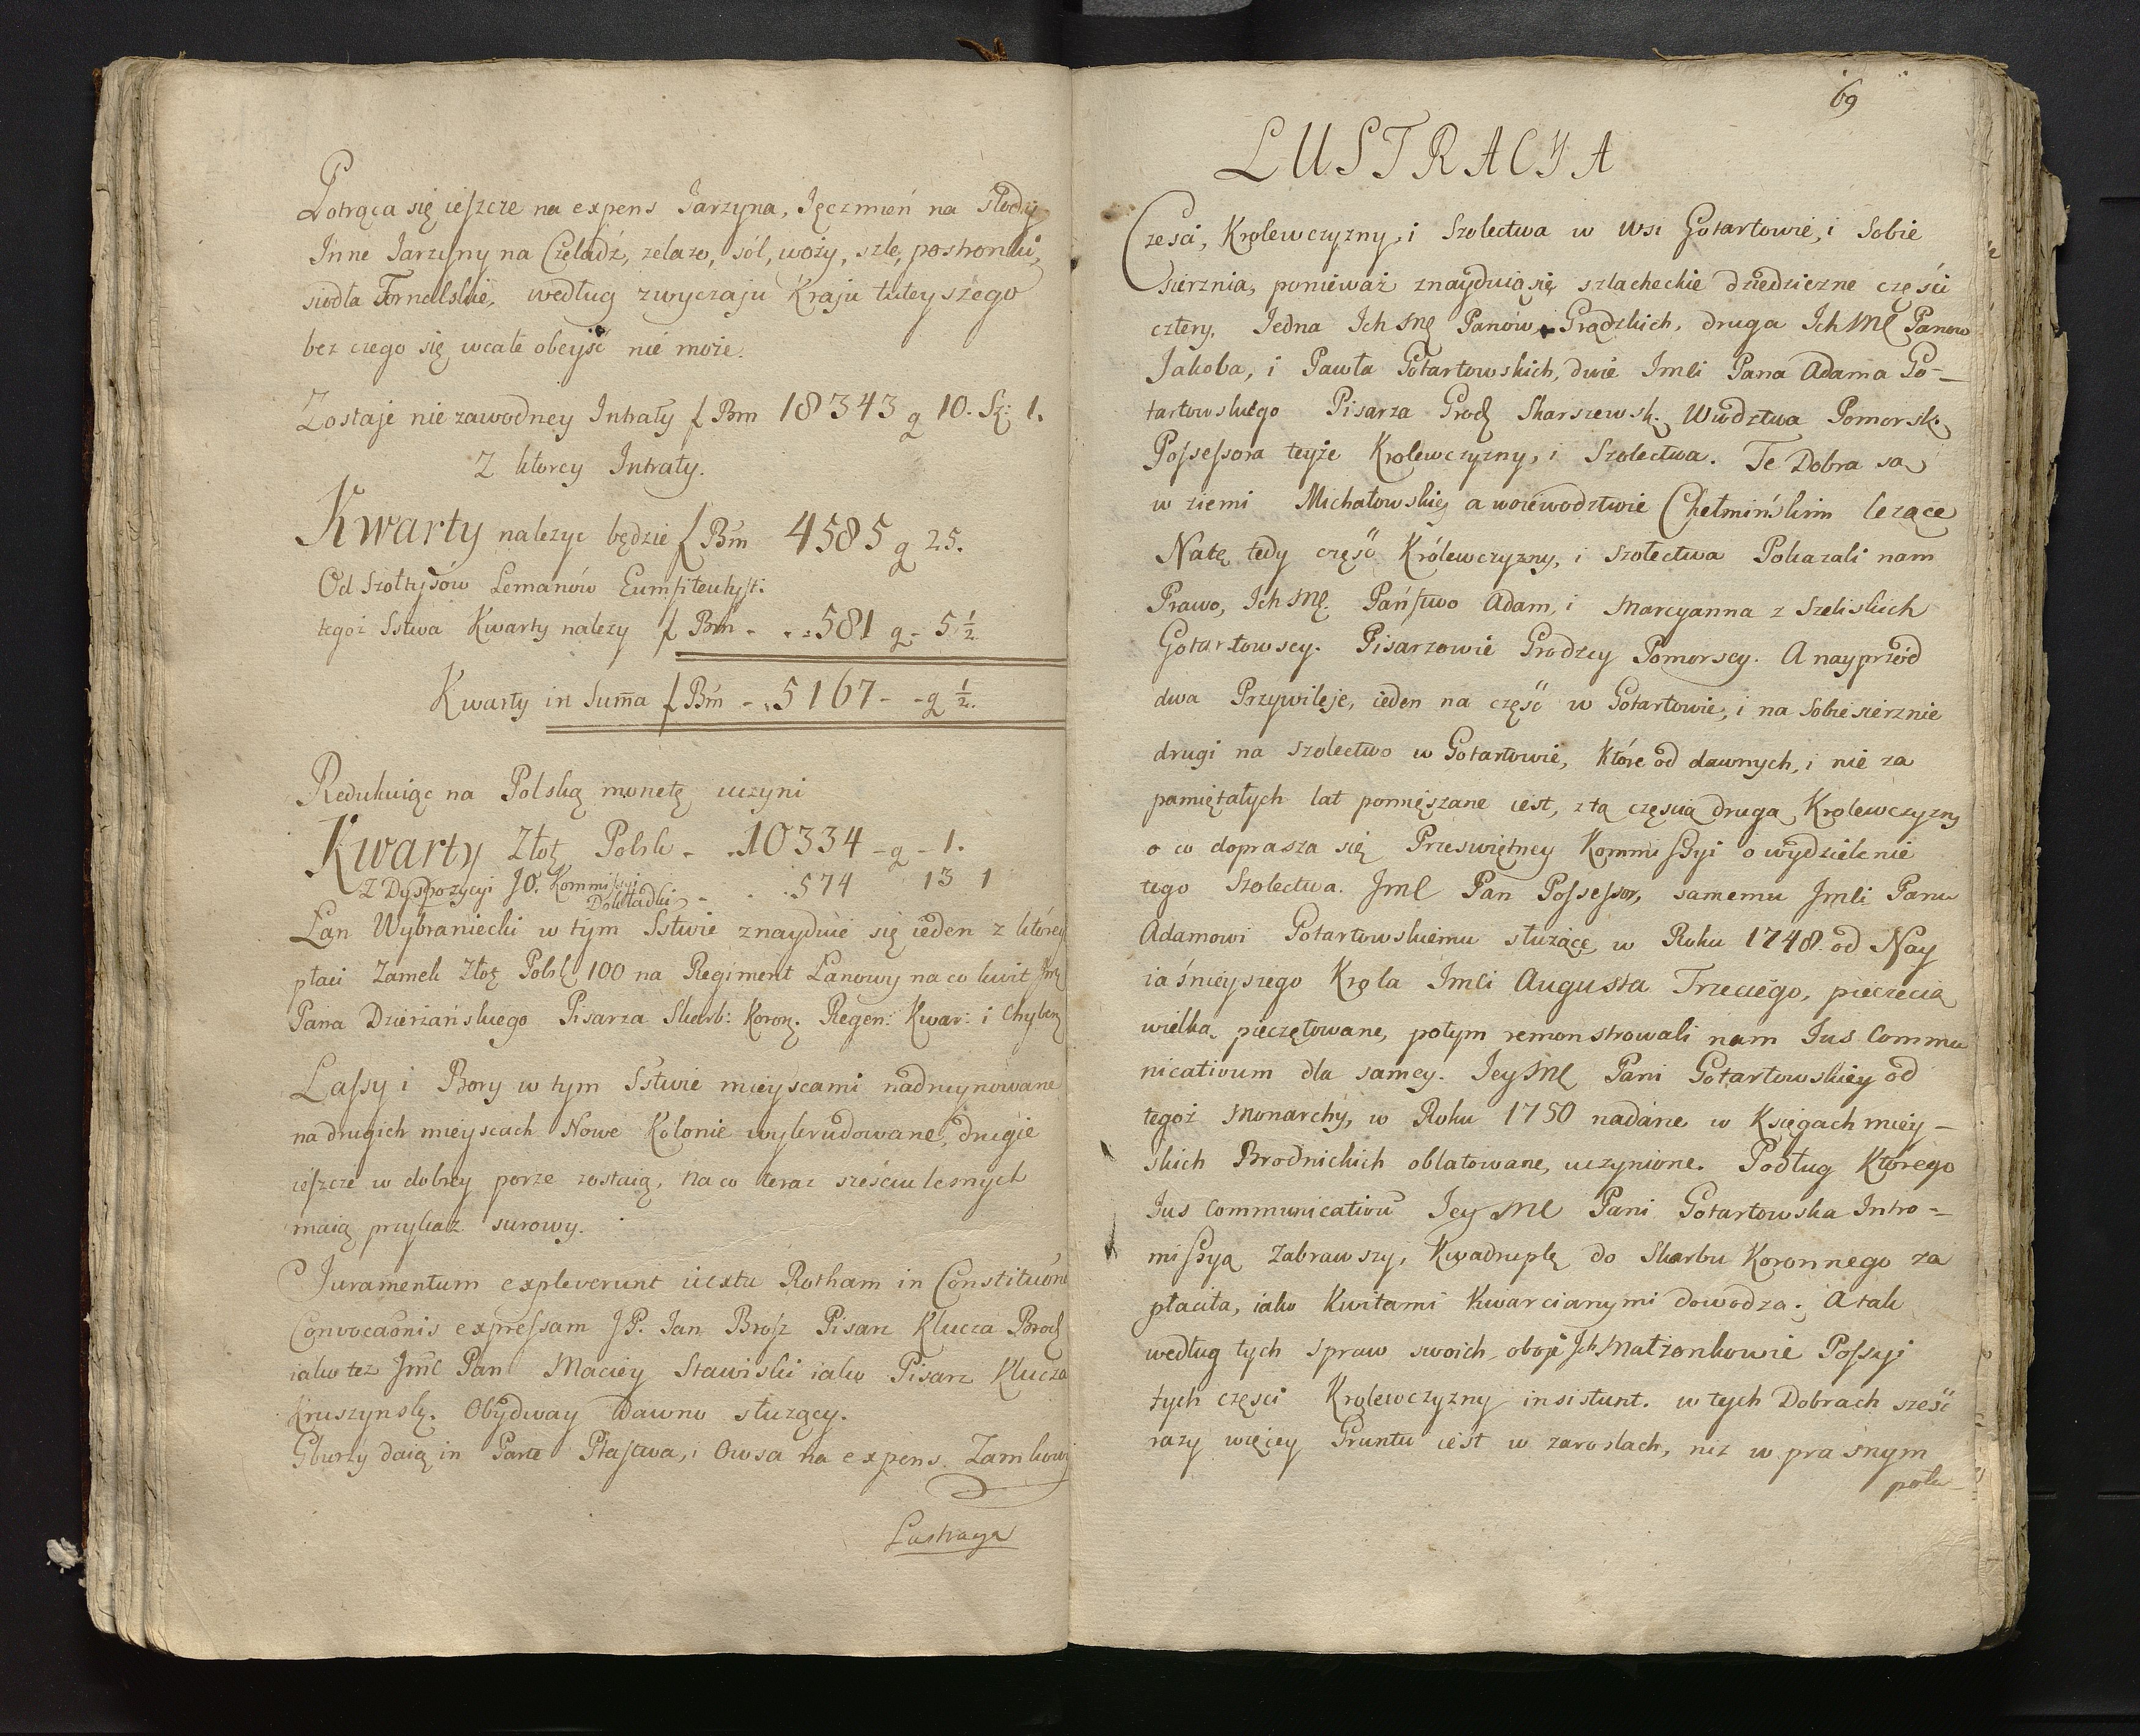 Potrąca się ieszcze na expens Jarzyna, Jęczmień na słody
Inne Jarzyny na Czeladź, zelazo, sól, wozy, szle, postronki,
siodła Fornalskie, według zwyczaju Kraju tuteyszego
bez czego się wcale obeyść nie może.
Zostaje nie zawodney Intraty f Bm 18343 g 10. Sz: 1.
Z ktorey Intraty.
Kwarty nalezyc będzie f Bm 4585 g 25.
Od Szołtysów Lemanów Eumfiteutyst:
tegoż Sstwa Kwarty nalezy f Bm - 581 g - 5 1/2
Kwarty in Suma f Bm - 5167 - g 1/2.
Redukuiąc na Polską monetę uczyni
Kwarty Złoł Polsk - 10334 - g - 1.
Z Dyspozycyi JO. Kommissyi
Dokładki - 574 13 1
Łan Wybraniecki w tym Sstwie znayduie się ieden z ktorey
płaci Zamek Złoł Polsk 100 na Regiment Łanowy na co kwit Jmę
Pana Dzierżańskiego Pisarza Skarb: Koron. Regen: Kwar: i
Lassy i Bory w tym Sstwie mieyscami nadruynowane
na drugich mieyscach Nowe Kolonie wykrudowane, drugie
ieszcze w dobrey porze zostaią, na co teraz sześciu lesnych
maią przykaz surowy.
Juramentum expleverunt iuxta Rotham in Constitutione
Convocaonis expressam JP. Jan Brosz Pisarz Klucza Brod
iako tez Jmć Pan Maciey Stawiski iako Pisarz Klucza
Kruszynsk. Obydway dawno służący.
Gburzy daią in Parte Ptastwa, i Owsa na expens Zamkowi
Lustracya
69
LUSTRACYA
Czesci, Krolewczyzny, i Szolectwa w Wsi Gotartowie, i Sobie
sierznia, ponieważ znayduią się szlacheckie dziedziczne części
cztery. Jedna Ich Mę Panów Grądzkich, druga Ich Mę Panow
Jakoba, i Pawła Gotartowskich, dwie Jmci Pana Adama Go-
tartowskiego Pisarza Grod Skarszewsk. Wiodztwa Pomorsk.
Possessora teyże Krolewczyzny, i Szolectwa. Te Dobra są
w ziemi Michałowskiey a woiewodztwie Chełmińskim lezące
Natę tedy część Królewczyzny, i szolectwa Pokazali nam
Prawo, Ich Mę. Państwo Adam, i Marcyanna z Szeliskich
Gotartowscy. Pisarzowie Grodzcy Pomorscy. A nayprzód
dwa Przywileje, ieden na część w Gotartowie, i na Sobiesierznie
drugi na szolectwo w Gotartowie, które od dawnych, i nie za
pamiętałych lat pomięszane iest, z tą częscią druga Krolewczyzny
o co doprasza się Przeswiętney Kommissyi o wydzielenie
tego Szolectwa. Jmć Pan Possessor, samemu Jmci Panu
Adamowi Gotartowskiemu służące w Roku 1748 od Nay
iaśnieyszego Krola Jmci Augusta Trzeciego, pieczecią
wielką pieczętowane, potym remonstrowali nam Jus Commu
nicativum dla samey. Jey Mć Pani Gotartowskiey od
tegoż Monarchy, w Roku 1750 nadane w Księgach miey-
skich Brodnickich oblatowane, uczynione. Podług Którego
Jus Communicativu Jey Mć Pani Gotartowska Intro-
missyą Zabrawszy, Kwadruplę do Skarbu Koronnego za
płaciła, iako Kwitami Kwarcianymi dowodzą. A tak
według tych spraw swoich, oboje Ich Małżonkowie Possyi
tych częsci Krolewczyzny insistunt. w tych Dobrach sześć
razy więcey Gruntu iest w zaroslach, niz w prasnym
polu